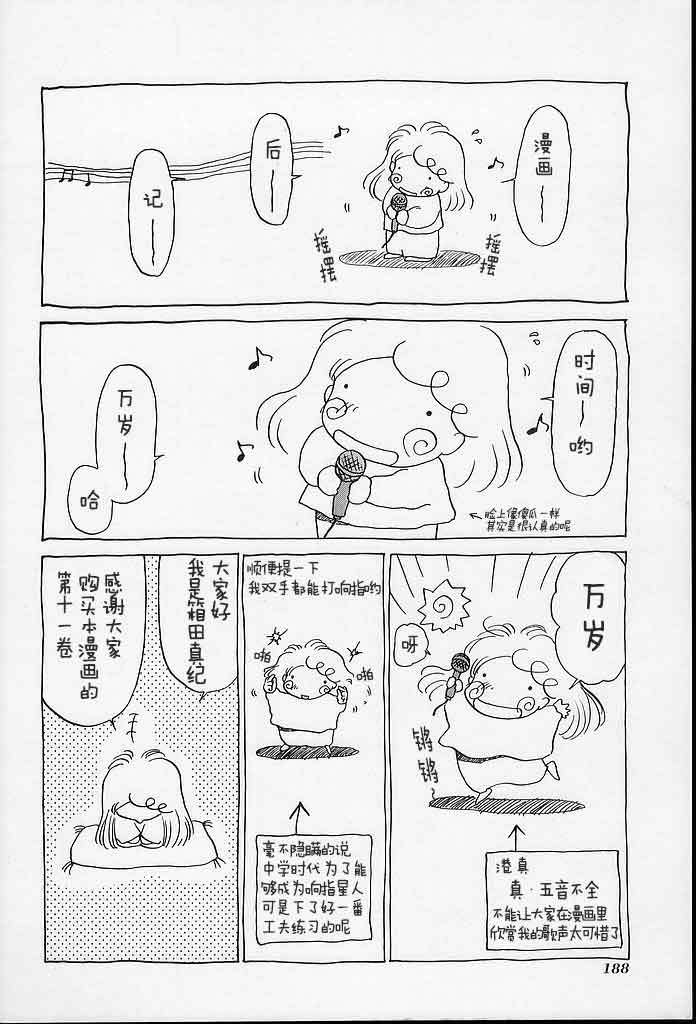 漫画～
后～
记～
摇摆
摇摆
时间～哟
万岁～
哈
←脸上像傻瓜一样
其实是很认真的呢
万岁
呀
锵锵
澄真
真·五音不全
不能让大家在漫画里
欣常我的歌声太可惜了
顺便提一下
我双手都能打响指哟
啪
啪
毫不隐瞒的说
中学时代为了能
够成为响指星人
可是下了好一番
工夫练习的呢
大家好
我是箱田真纪
感谢大家
购买本漫画的
第十一卷
188